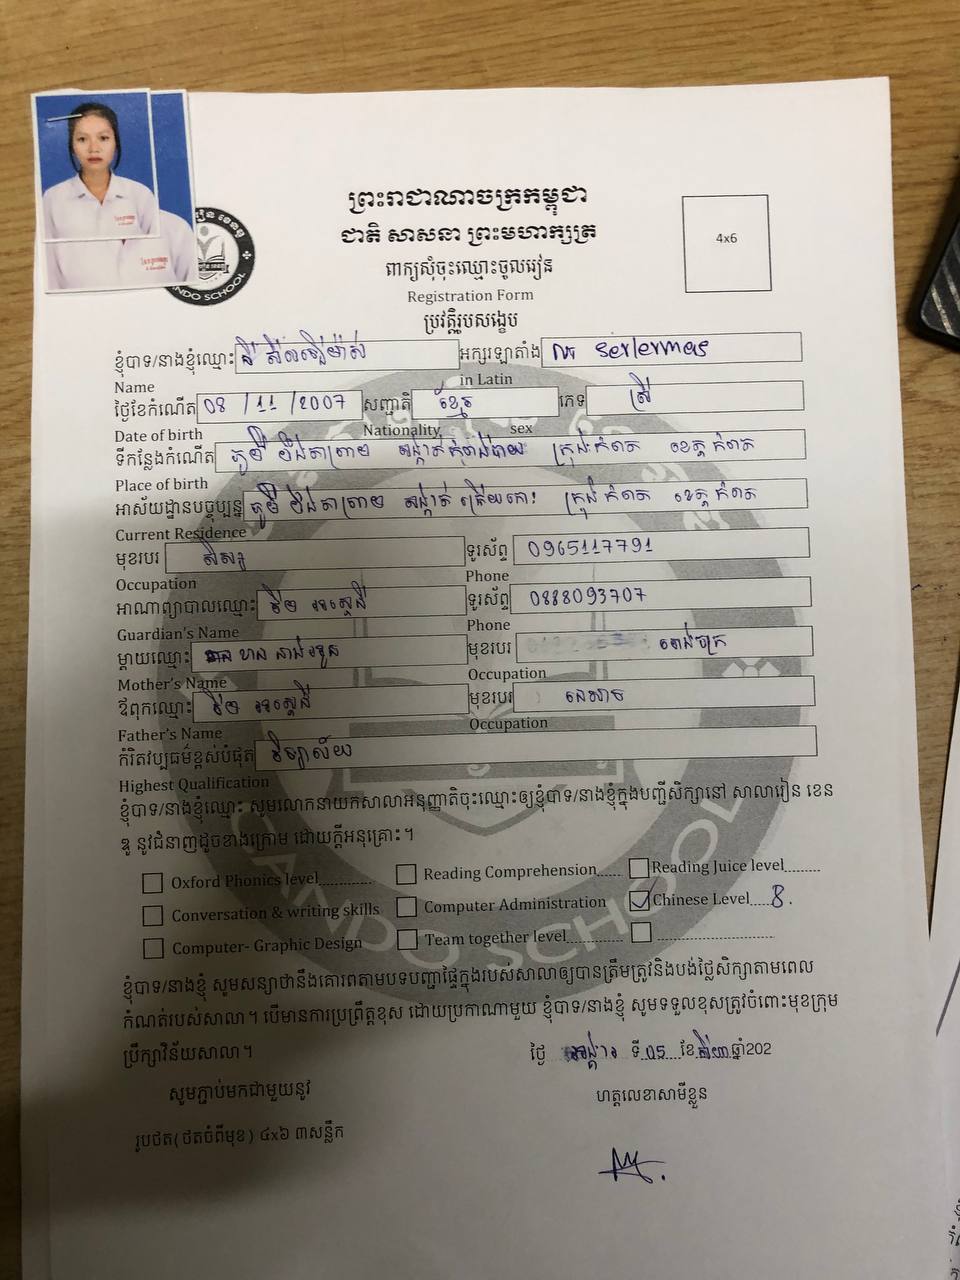 ព្រះរាជាណាចក្រកម្ពុជា
ជាតិ សាសនា ព្រះមហាក្សត្រ
4x6
ពាក្យសុំចុះឈ្មោះចូលរៀន
Registration Form
ប្រវត្តិរូបសង្ខេប
ខ្ញុំបាទ/នាងខ្ញុំឈ្មោះ អក្សរឡាតាំង serlermas
Name in Latin
ថ្ងៃខែកំណើត 08 /11 /2007 សញ្ជាតិ ខ្មែរ ភេទ ស្រី
Date of birth Nationality sex
ទីកន្លែងកំណើត ភូមិ សង្កាត់ ក្រុងកំពត ខេត្តកំពត
Place of birth
អាស័យដ្ឋានបច្ចុប្បន្ន ភូមិ សង្កាត់ ត្រើយកោះ ក្រុងកំពត ខេត្តកំពត
Current Residence
មុខរបរ សិស្ស ទូរស័ព្ទ 0965117791
Occupation Phone
អាណាព្យាបាលឈ្មោះ ទូរស័ព្ទ 0888093707
Guardian's Name Phone
ម្តាយឈ្មោះ មុខរបរ
Mother's Name Occupation
ឪពុកឈ្មោះ មុខរបរ នេសាទ
Father's Name Occupation
កំរិតវប្បធម៌ខ្ពស់បំផុត វិទ្យាល័យ
Highest Qualification
ខ្ញុំបាទ/នាងខ្ញុំឈ្មោះ សូមលោកនាយកសាលាអនុញ្ញាតិចុះឈ្មោះឲ្យខ្ញុំបាទ/នាងខ្ញុំក្នុងបញ្ជីសិក្សានៅ សាលារៀន ខេន
ឌូ នូវជំនាញដូចខាងក្រោម ដោយក្តីអនុគ្រោះ។
Oxford Phonics level............ Reading Comprehension...... Reading Juice level.........
Conversation & writing skills Computer Administration Chinese Level.....8.
Computer- Graphic Design Team together level..............
ខ្ញុំបាទ/នាងខ្ញុំ សូមសន្យាថានឹងគោរពតាមបទបញ្ជាផ្ទៃក្នុងរបស់សាលាឲ្យបានត្រឹមត្រូវនិងបង់ថ្លៃសិក្សាតាមពេល
កំណត់របស់សាលា។ បើមានការប្រព្រឹត្តខុស ដោយប្រកាណាមួយ ខ្ញុំបាទ/នាងខ្ញុំ សូមទទួលខុសត្រូវចំពោះមុខក្រុម
ប្រឹក្សាវិន័យសាលា។
ថ្ងៃ អង្គារ ទី 05 ខែ សីហា ឆ្នាំ202
សូមភ្ជាប់មកជាមួយនូវ ហត្ថលេខាសាមីខ្លួន
រូបថត(ថតចំពីមុខ) ៤x៦ ៣សន្លឹក